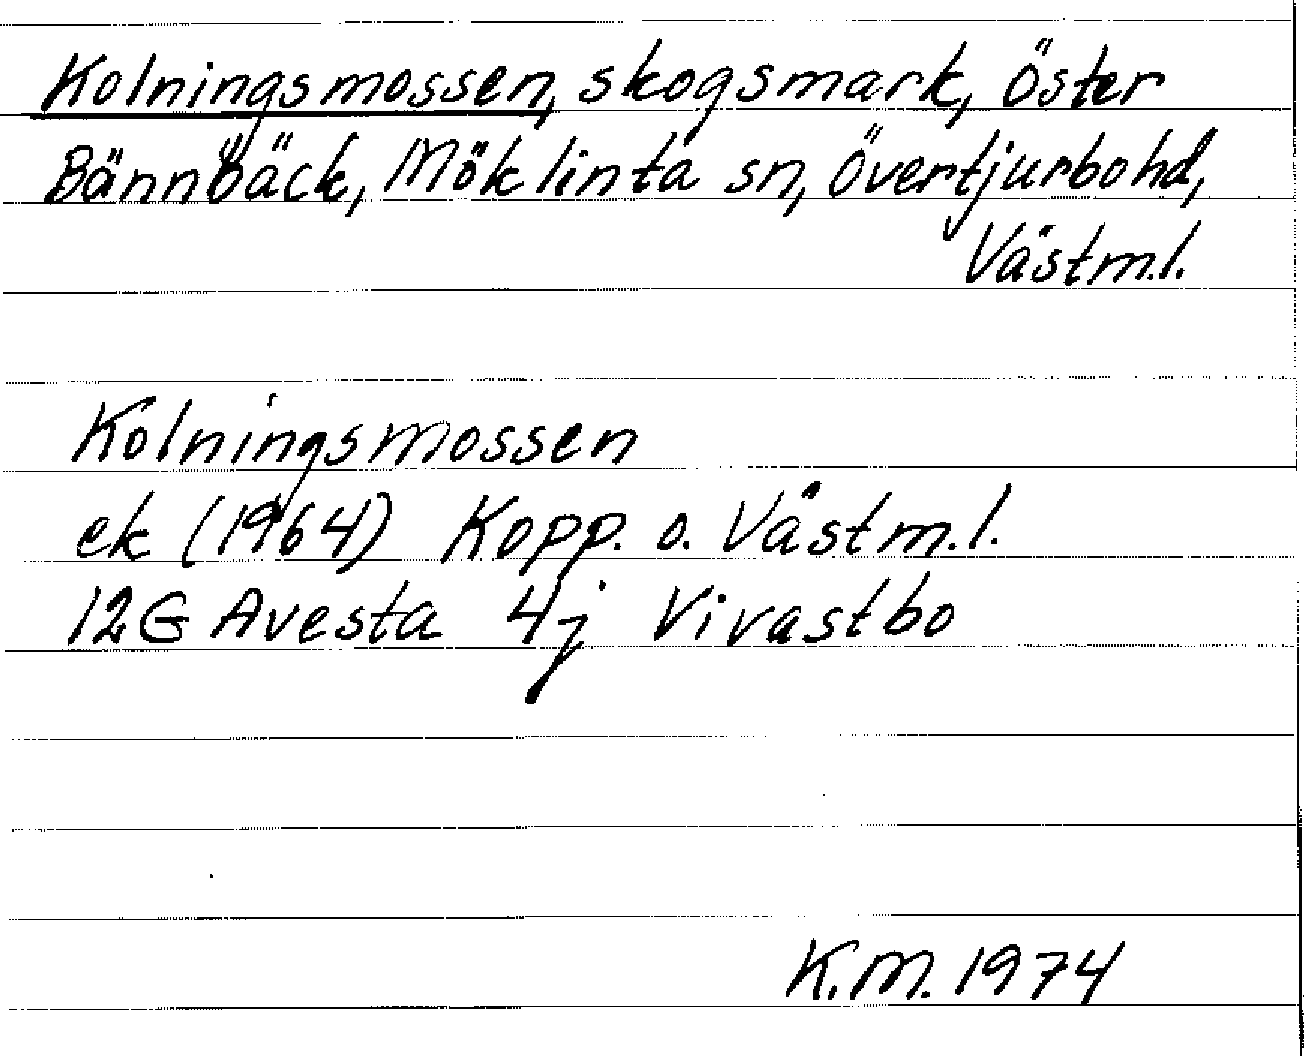 Kolningsmossen, skogsmark, Öster
Bännbäck, Möklinta sn, Övertjurbo hd,
Västm.l.
Kolningsmossen
ek (1964) Kopp. o. Västm.l.
12G Avesta 4j Vivastbo
K.M. 1974